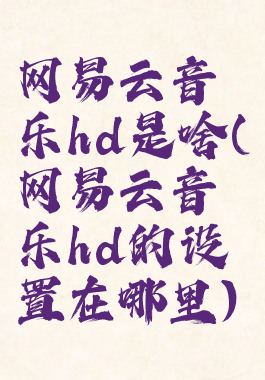 网易云音
乐hd是啥(
网易云音
乐hd的设
置在哪里)